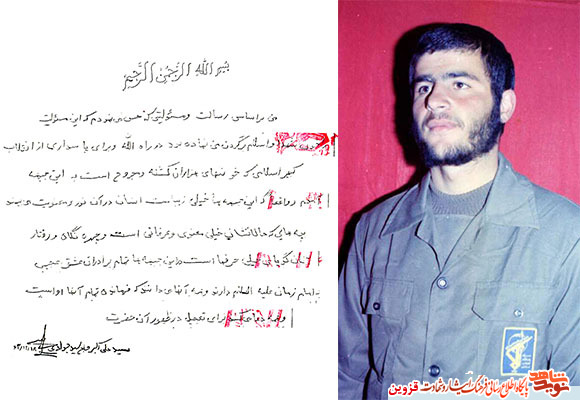 بسم الله الرحمن الرحیم
من براساس رسالت و مسئولیتی که حس می نمودم که این مسئولیت
واسلام برگردن من نهاده بود در راه الله و برای پاسداری از انقلاب
کبیر اسلامی که خونبهای هزاران کشته و مجروح است به این جبهه
و واقعاً که این جبهه ها خیلی زیباست انسان در آن نور و معنویت می بیند
بچه هایی که حالاتشان خیلی معنوی و عرفانی است و چهره نگاه و رفتار
خیلی حرفها است در این جبهه ها تمام برادران عشق عجیبی
به امام زمان علیه السلام دارند و به آنهای دانند که فرمانده تمام آنها اوست
و همه دعا برای تعجیل در ظهور آن حضرت
سید علی اکبر
نوید شاهد
پایگاه اطلاع رسانی فرهنگ ایثار و شهادت قزوین